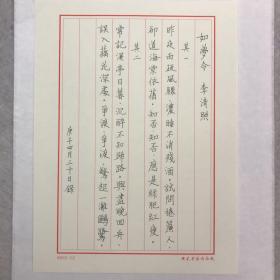 如夢令 李清照
其一
昨夜雨疏風驟，濃睡不消殘酒，試問捲簾人，
卻道海棠依舊，知否知否，應是綠肥紅瘦。
其二
常記溪亭日暮，沉醉不知歸路，興盡晚回舟，
誤入藕花深處，爭渡，爭渡，驚起一灘鷗鷺。
庚子四月二十日錄